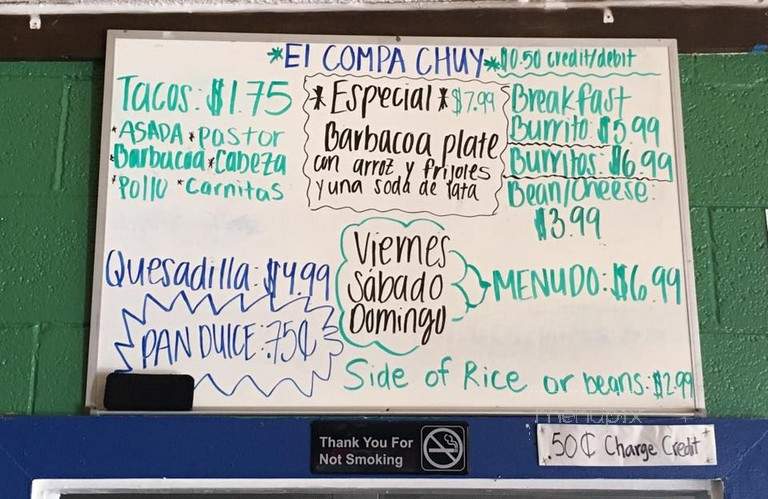 *El COMPA CHUY* $0.50 credit/debit
Tacos: $1.75
*ASADA *Pastor
*Barbacoa *Cabeza
*Pollo *Carnitas
*Especial* $7.99
Barbacoa plate
con arroz y frijoles
y una soda de lata
Breakfast
Burrito: $5.99
Burritos: $6.99
Bean/Cheese:
$3.99
Quesadilla: $4.99
PAN DULCE: .75¢
Viernes
Sábado
Domingo
MENUDO: $6.99
Side of Rice or beans: $2.99
menupix
Thank You For
Not Smoking
.50¢ Charge Credit